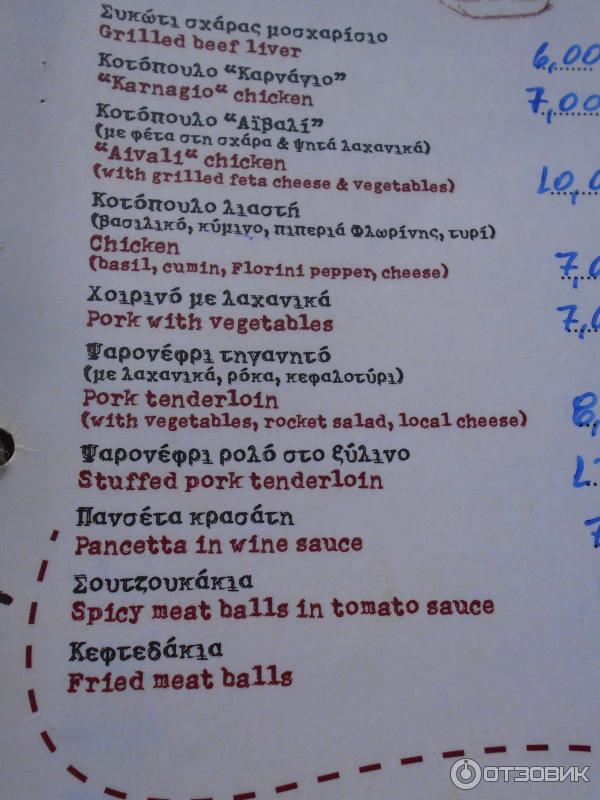 Συκώτι σχάρας μοσχαρίσιο
Grilled beef liver 6,00
Κοτόπουλο “Καρνάγιο”
“Karnagio“ chicken 7,00
Κοτόπουλο “Αϊβαλί”
(με φέτα στη σχάρα & ψητά λαχανικά)
“Aivali“ chicken
(with grilled feta cheese & vegetables) 10,0
Κοτόπουλο λιαστή
(βασιλικό, κύμινο, πιπεριά Φλωρίνης, τυρί)
Chicken
(basil, cumin, Florini pepper, cheese) 7,0
Χοιρινό με λαχανικά
Pork with vegetables 7,0
Ψαρονέφρι τηγανητό
(με λαχανικά, ρόκα, κεφαλοτύρι)
Pork tenderloin
(with vegetables, rocket salad, local cheese) 8,
Ψαρονέφρι ρολό στο ξύλινο
Stuffed pork tenderloin
Πανσέτα κρασάτη
Pancetta in wine sauce 7
Σουτζουκάκια
Spicy meat balls in tomato sauce
Κεφτεδάκια
Fried meat balls
ОТЗОВИК